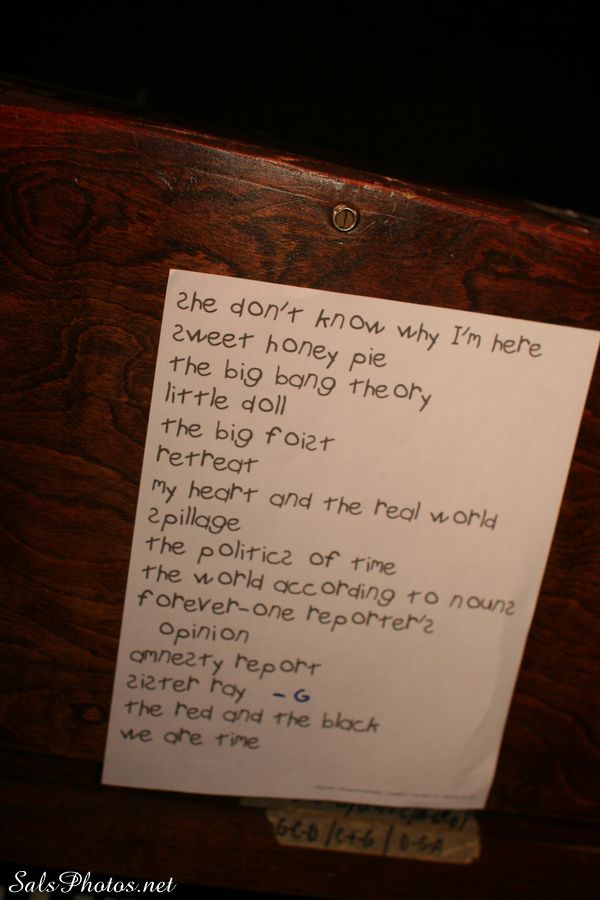 she don't know why I'm here
sweet honey pie
the big bang theory
little doll
the big foist
retreat
my heart and the real world
spillage
the politics of time
the world according to nouns
forever-one reporter's
opinion
amnesty report
sister ray - G
the red and the black
we are time
G-C-D / C+G / D-G-A
SalsPhotos.net